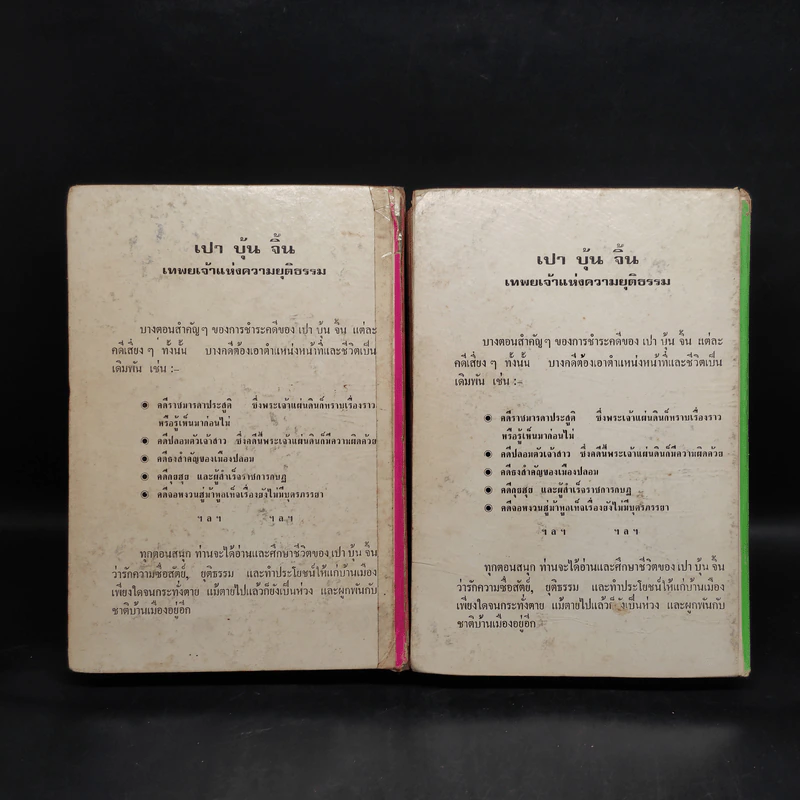 เปา บุ้น จิ้น
เทพยเจ้าแห่งความยุติธรรม
บางตอนสำคัญๆ ของการชำระคดีของ เปา บุ้น จิ้น แต่ละ
คดีเสี่ยงๆ ทั้งนั้น บางคดีต้องเอาตำแหน่งหน้าที่และชีวิตเป็น
เดิมพัน เช่น :-
คดีราชมารดาประสูติ ซึ่งพระเจ้าแผ่นดินก็ทราบเรื่องราว
หรือรู้เห็นมาก่อนไม่
คดีปลอมตัวเจ้าสาว ซึ่งคดีนี้พระเจ้าแผ่นดินก็มีความผิดด้วย
คดีธงสำคัญของเมืองปลอม
คดีลุยสุย และผู้สำเร็จราชการกบฏ
คดีจอหงวนสู่ม้าพูดเท็จเรื่องยังไม่มีบุตรภรรยา
ฯลฯ ฯลฯ
ทุกตอนสนุก ท่านจะได้อ่านและศึกษาชีวิตของ เปา บุ้น จิ้น
ว่ารักความซื่อสัตย์, ยุติธรรม และทำประโยชน์ให้แก่บ้านเมือง
เพียงใดจนกระทั่งตาย แม้ตายไปแล้วก็ยังเป็นห่วง และผูกพันกับ
ชาติบ้านเมืองอยู่อีก
เปา บุ้น จิ้น
เทพยเจ้าแห่งความยุติธรรม
บางตอนสำคัญๆ ของการชำระคดีของ เปา บุ้น จิ้น แต่ละ
คดีเสี่ยงๆ ทั้งนั้น บางคดีต้องเอาตำแหน่งหน้าที่และชีวิตเป็น
เดิมพัน เช่น :-
คดีราชมารดาประสูติ ซึ่งพระเจ้าแผ่นดินก็ทราบเรื่องราว
หรือรู้เห็นมาก่อนไม่
คดีปลอมตัวเจ้าสาว ซึ่งคดีนี้พระเจ้าแผ่นดินก็มีความผิดด้วย
คดีธงสำคัญของเมืองปลอม
คดีลุยสุย และผู้สำเร็จราชการกบฏ
คดีจอหงวนสู่ม้าพูดเท็จเรื่องยังไม่มีบุตรภรรยา
ฯลฯ ฯลฯ
ทุกตอนสนุก ท่านจะได้อ่านและศึกษาชีวิตของ เปา บุ้น จิ้น
ว่ารักความซื่อสัตย์, ยุติธรรม และทำประโยชน์ให้แก่บ้านเมือง
เพียงใดจนกระทั่งตาย แม้ตายไปแล้วก็ยังเป็นห่วง และผูกพันกับ
ชาติบ้านเมืองอยู่อีก